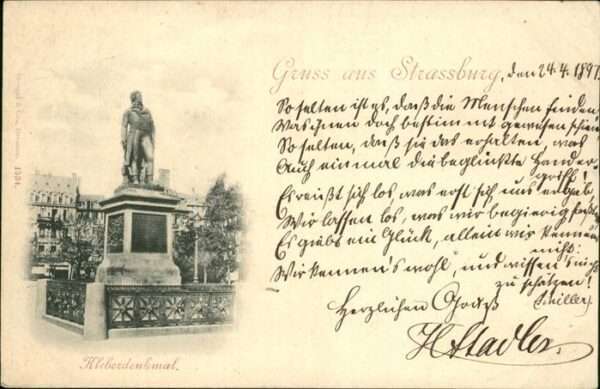 Gruss aus Strassburg, den 24.4.1897.
So selten ist es, daß die Menschen finden,
Was ihnen doch bestimmt gewesen schien
So selten, daß sie das erhalten, was
Auch einmal die beglückte Hand er-
griff!
Es reißt sich los, was erst sich uns ergab,
Wir lassen los, was wir begierig faßt
Es giebt ein Glück, allein wir kennen
nicht:
Wir kennen's wohl, und wissen's nicht
zu schätzen!
(Schiller)
Herzlichen Gruß
HStadler
Kleberdenkmal.